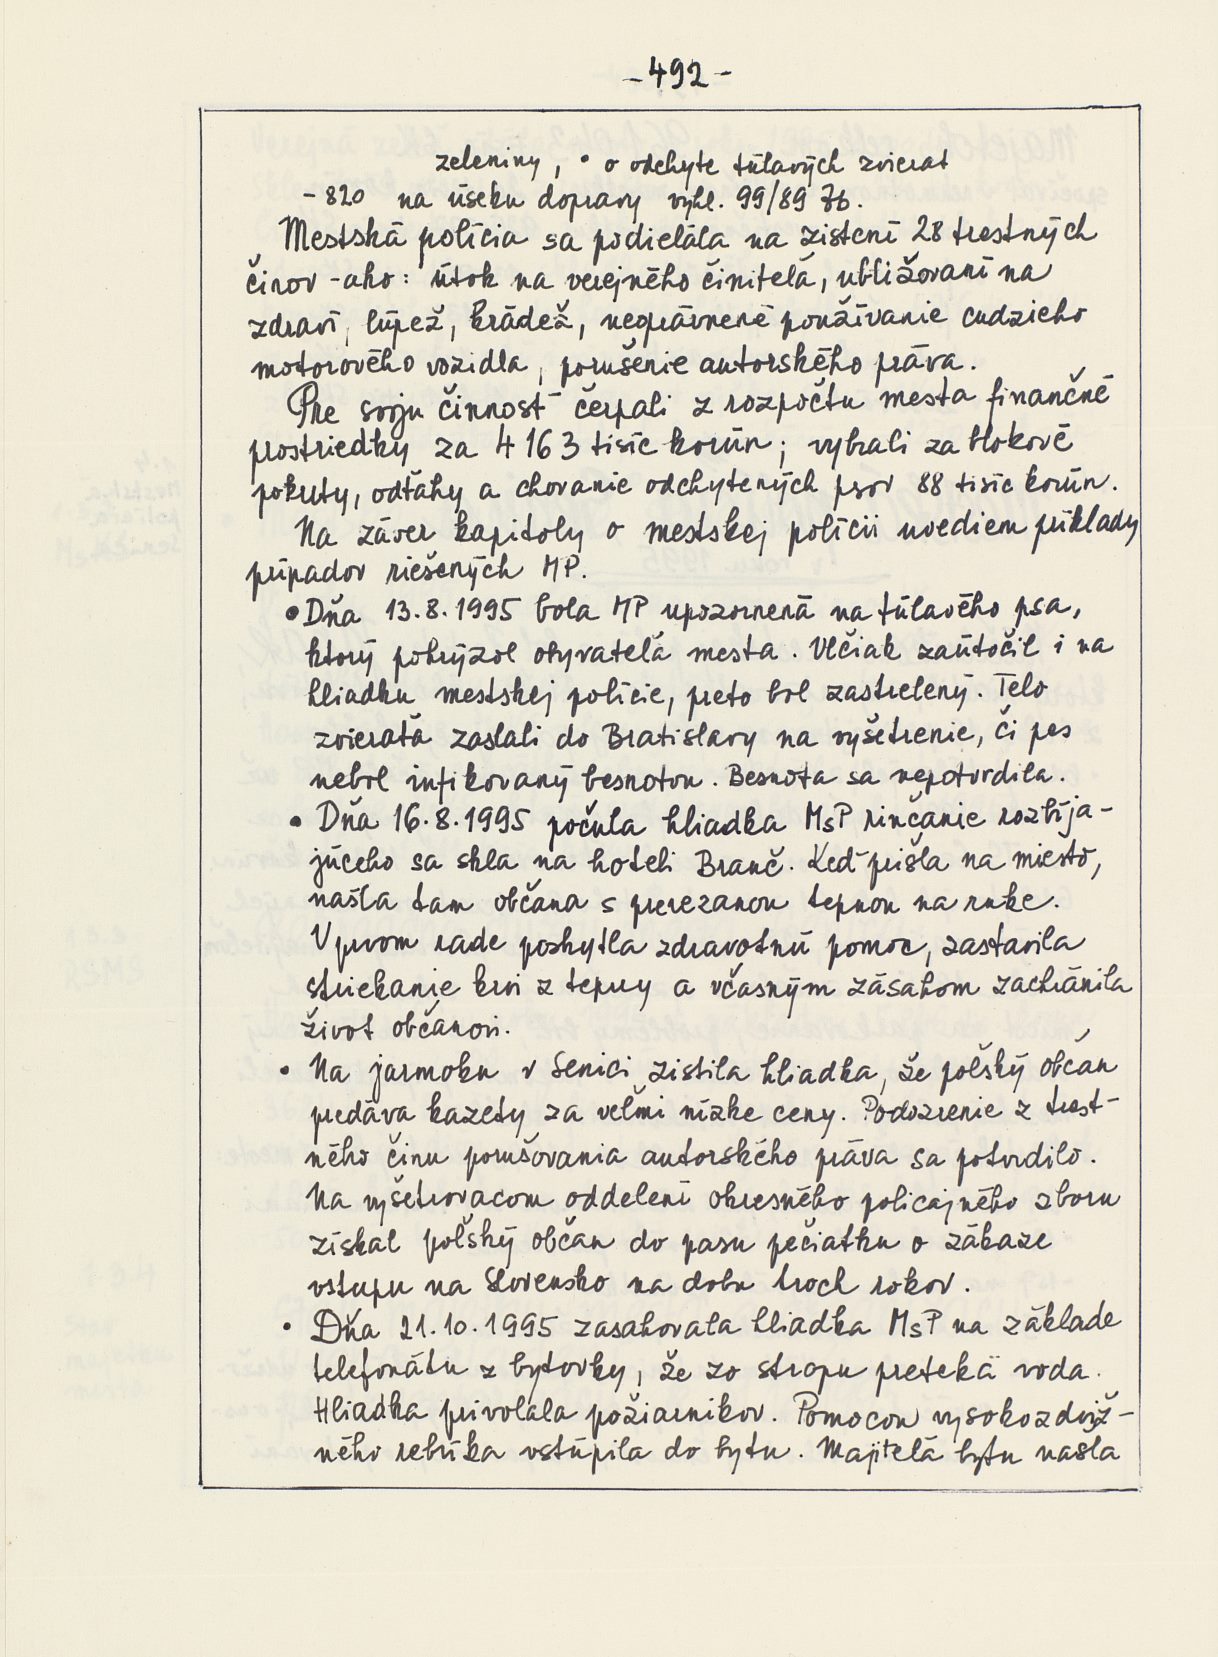 - 492 -
zeleniny, • o odchyte túlavých zvierat
- 820 na úseku dopravy vyhl. 99/89 Zb.
Mestská polícia sa podieľala na zistení 28 trestných
činov - ako: útok na verejného činiteľa, ubližovaní na
zdraví, lúpež, krádež, neoprávnené používanie cudzieho
motorového vozidla, porušenie autorského práva.
Pre svoju činnosť čerpali z rozpočtu mesta finančné
prostriedky za 4 163 tisíc korún; vybrali za blokové
pokuty, odťahy a chovanie odchytených psov 88 tisíc korún.
Na záver kapitoly o mestskej polícii uvediem príklady
prípadov riešených MP.
• Dňa 13.8.1995 bola MP upozornená na túlavého psa,
ktorý pohrýzol obyvateľa mesta. Vlčiak zaútočil i na
hliadku mestskej polície, preto bol zastrelený. Telo
zvieraťa zaslali do Bratislavy na vyšetrenie, či pes
nebol infikovaný besnotou. Besnota sa nepotvrdila.
• Dňa 16.8.1995 počula hliadka MsP rinčanie rozbíja-
júceho sa skla na hoteli Branč. Keď prišla na miesto,
našla tam občana s prerezanou tepnou na ruke.
V prvom rade poskytla zdravotnú pomoc, zastavila
striekanie krvi z tepny a včasným zásahom zachránila
život občanovi.
• Na jarmoku v Senici zistila hliadka, že poľský občan
predáva kazety za veľmi nízke ceny. Podozrenie z trest-
ného činu porušovania autorského práva sa potvrdilo.
Na vyšetrovacom oddelení okresného policajného zboru
získal poľský občan do pasu pečiatku o zákaze
vstupu na Slovensko na dobu troch rokov.
• Dňa 21.10.1995 zasahovala hliadka MsP na základe
telefonátu z bytovky, že zo stropu preteká voda.
Hliadka privolala požiarnikov. Pomocou vysokozdviž-
ného rebríka vstúpila do bytu. Majiteľa bytu našla